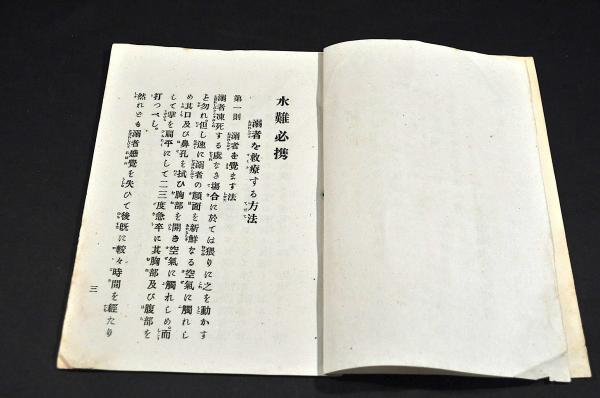 水難必携
溺者を救療する方法
第一則 溺者を覺ます法
溺者凍死する虞なき塲合に於ては猥りに之を動かす
と勿れ但し速に溺者の顏面を新鮮なる空氣に觸れし
め其口及び鼻孔を拭ひ胸部を開き空氣に觸れしめ而
して掌を扁平にして二三度急卒に其胸部及び腹部を
打つべし。
然れとも溺者感覺を失ひて後既に較々時間を經たり
三